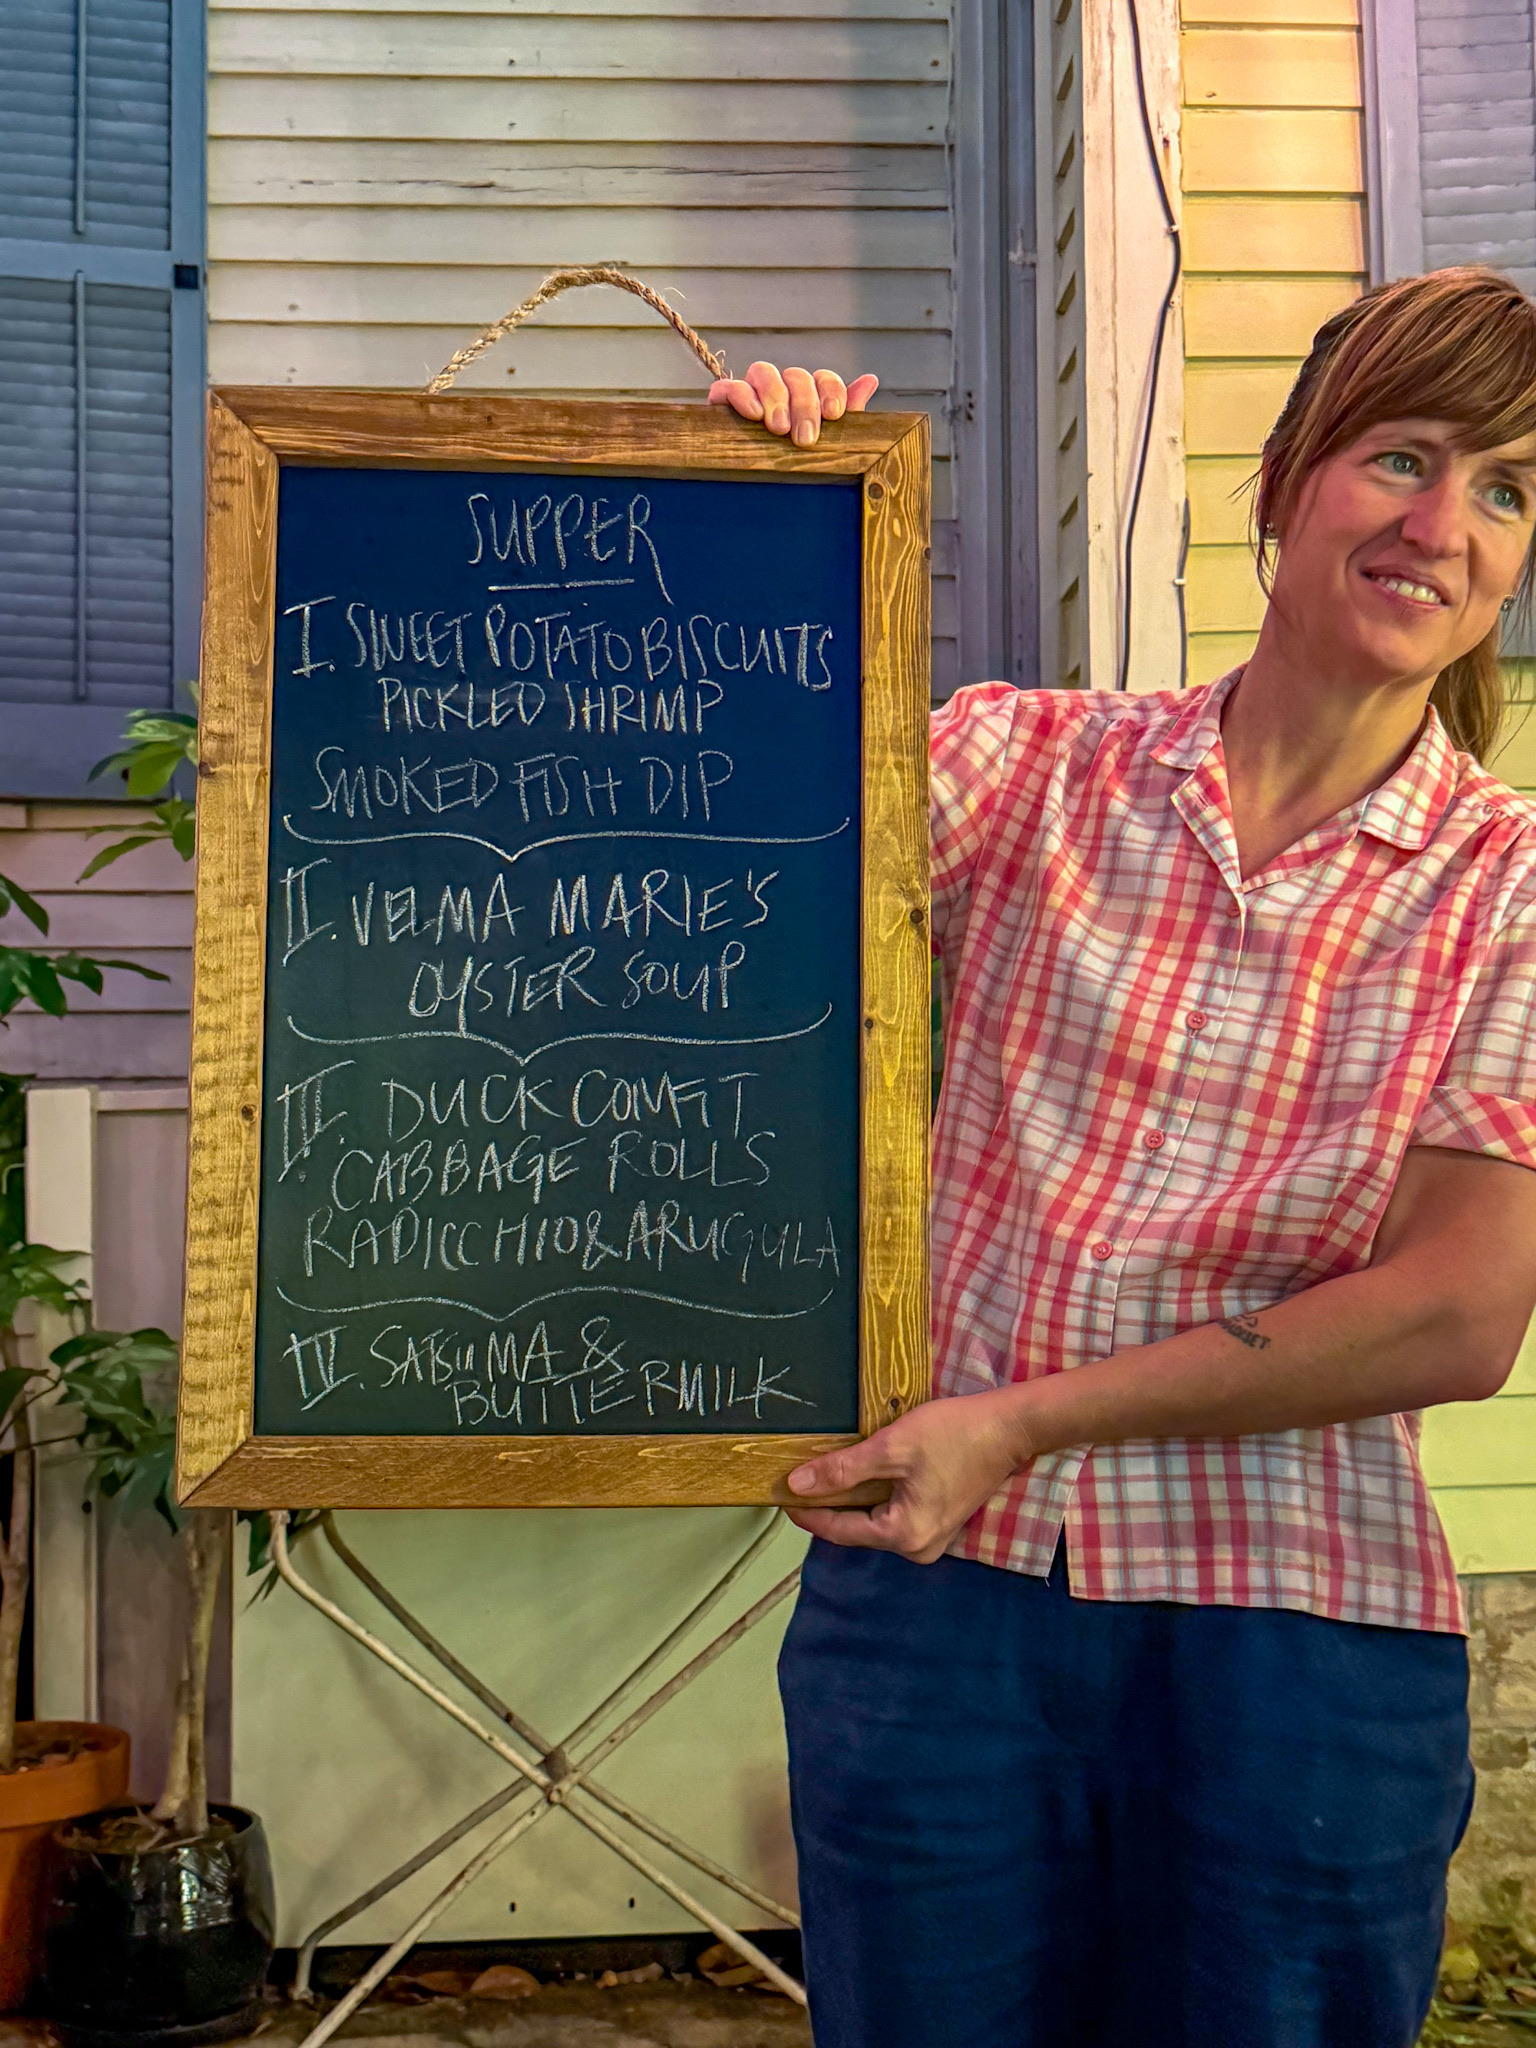 SUPPER
I. SWEET POTATO BISCUITS
PICKLED SHRIMP
SMOKED FISH DIP
II. VELMA MARIE'S
OYSTER SOUP
III. DUCK CONFIT
CABBAGE ROLLS
RADICCHIO & ARUGULA
IV. SATSUMA &
BUTTERMILK